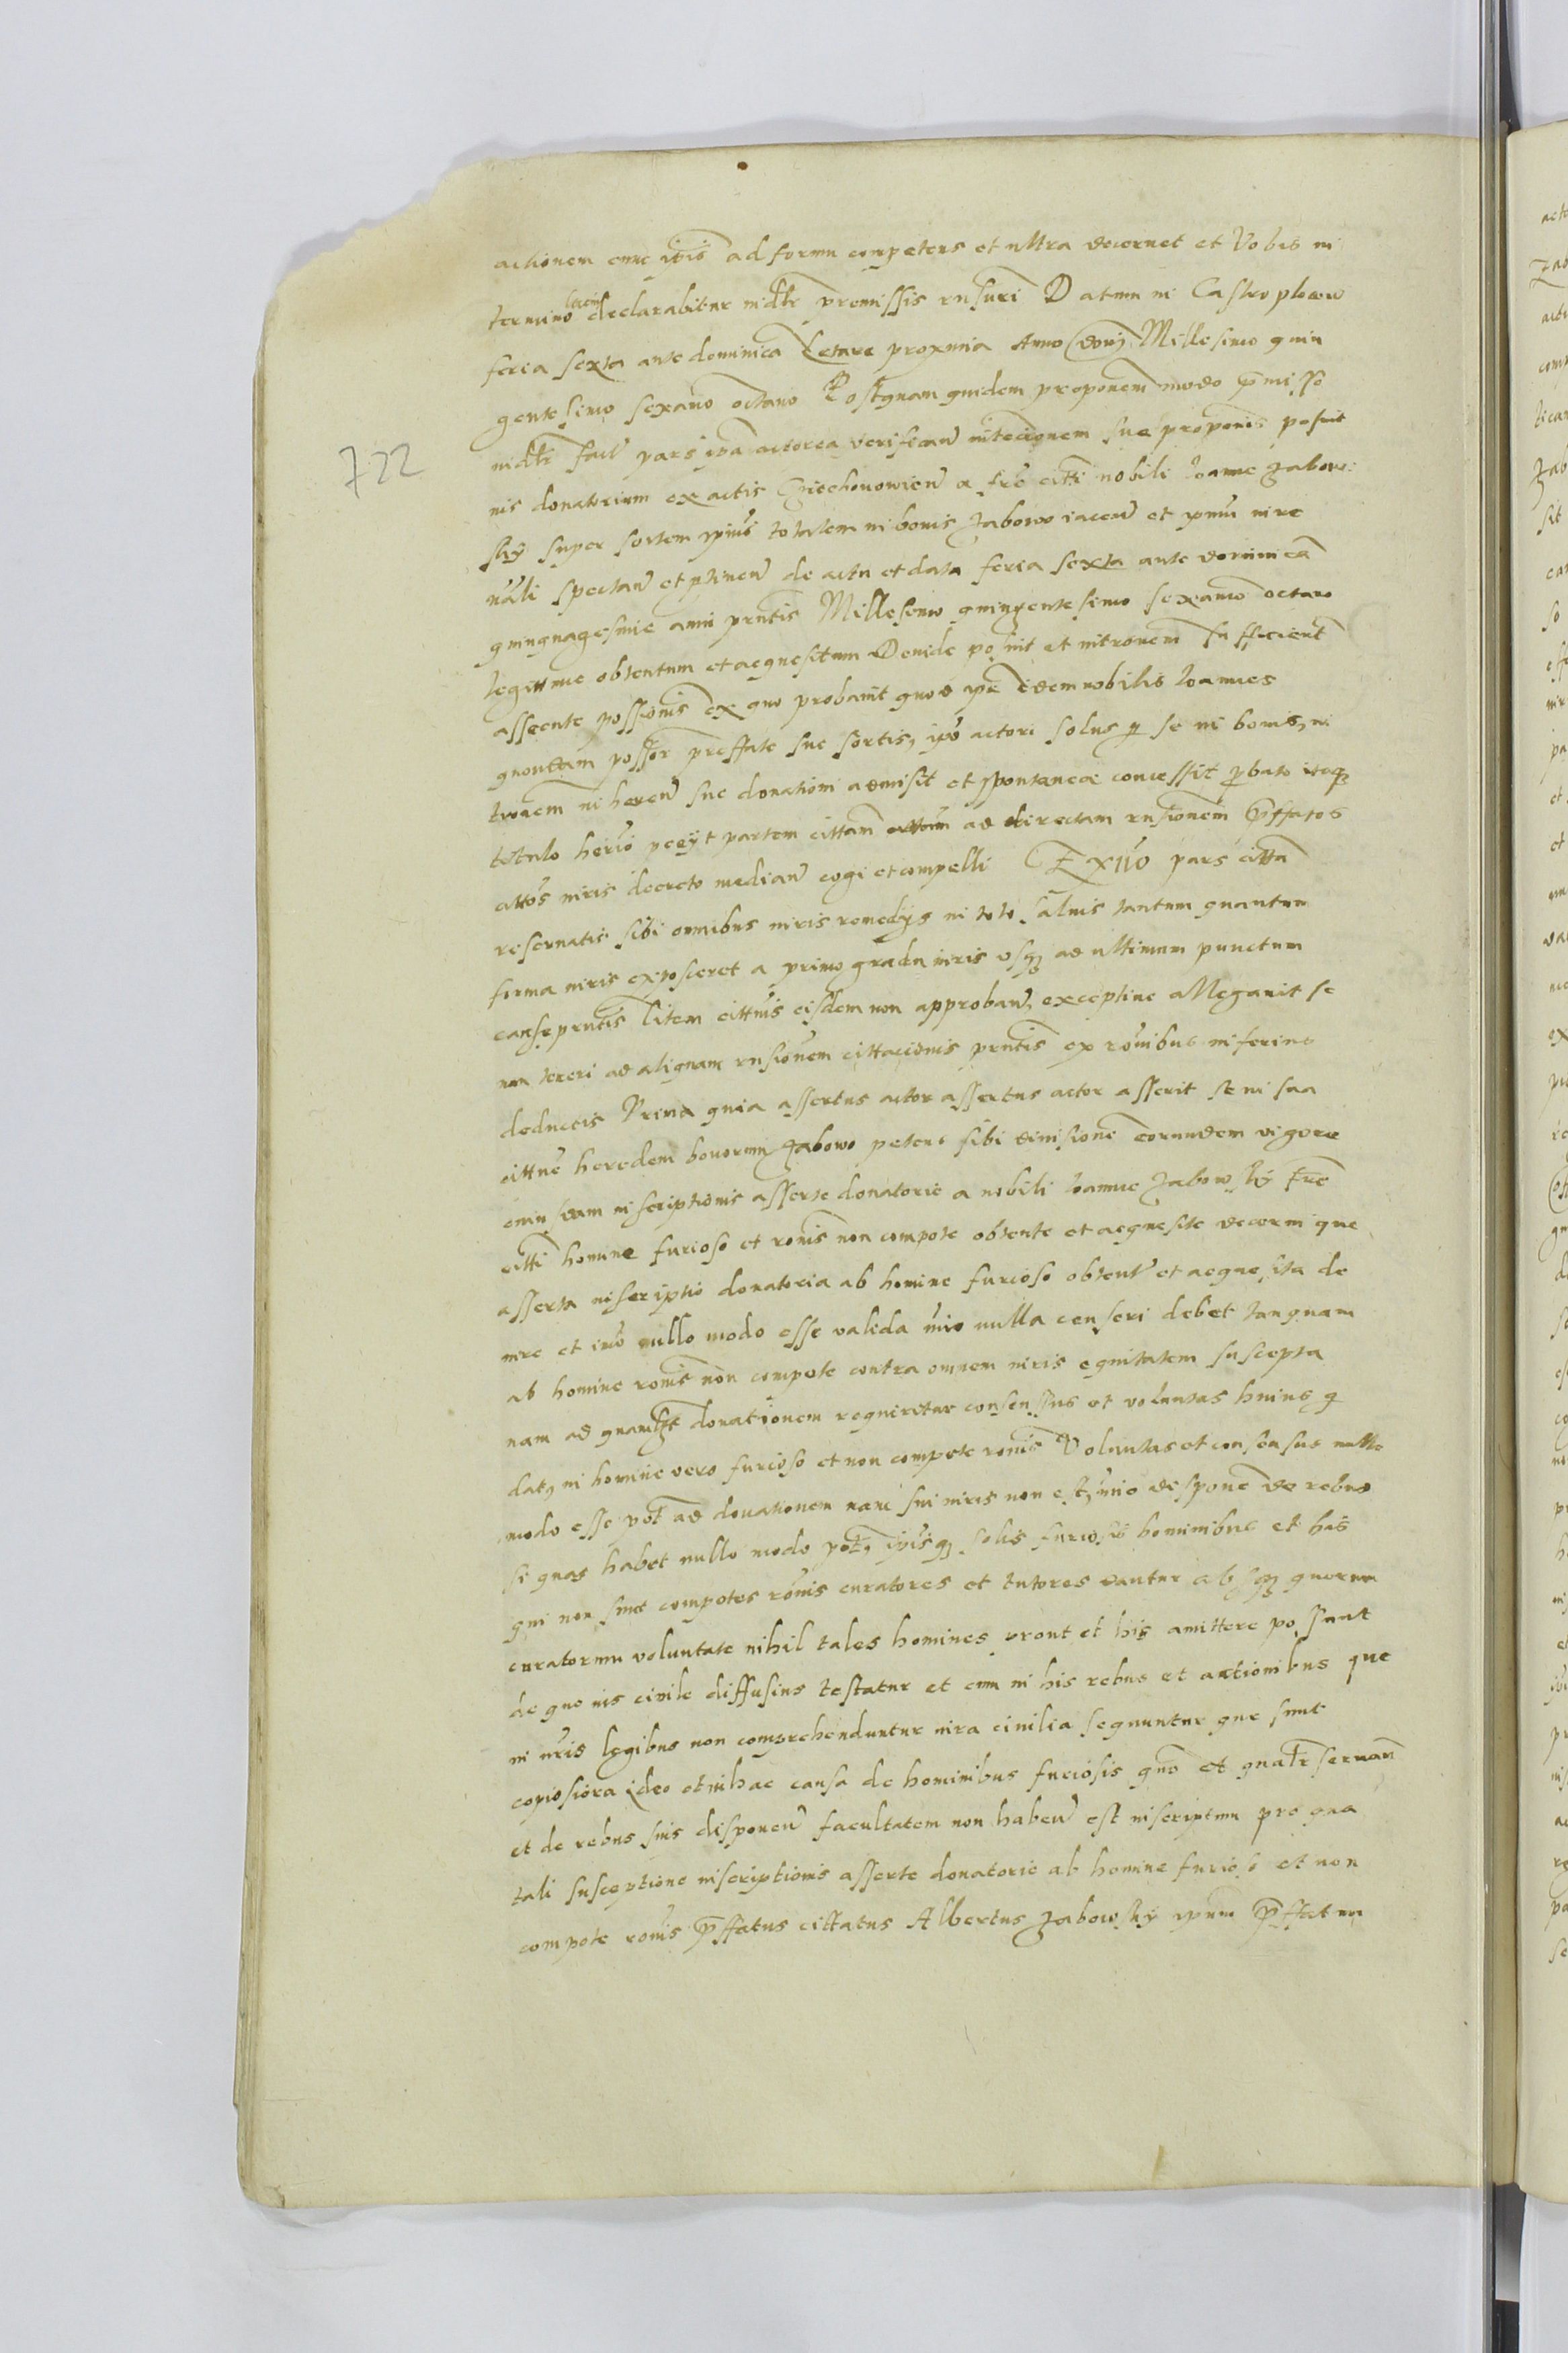 actionem cuius ipsis ad formu competens et ultra decernet et Vobis in
termino latius declarabitur iudltr premissis rnsuri Datum in Castro plocen
feria sexta ante dominica Letare proxima Anno dony Millesimo quin
gentesimo sexamo octauo Postquam quidem proponem modo premisse
iudltr fact pars ipa actorea verifican intecionem sue proponis posuit
ius donatorium ex actis Cziechonowien a fre citti nobili Joanne Zabow
sky super sortem ipius totalem in bonis Zabowo iacen et ipmu iure
nali spectan et ptinen de actu et data feria sexta ante dominica
quinquagesime anni prntis Millesimo quingentesimo sexamo octauo
legittime obtentum et acquesitum Deinde posuit et introuem sufficient
asserte possionis ex quo probauit quod ipe idem nobilis Joannes
quondam possor preffate sue sortis, ipo actori solus p se in bonis, in
trom in heren sue donationi admisit et spontanee concessit pbato itaq
tetulo herio peeyt partem cittam ad directam rnsionem preffatos
attos iuris decreto median cogi et compelli Ex iio pars citta
reseruatis sibi omnibus iuris remedys in toto saluis tantum quantum
forma iuris exposceret a primo gradu iuris usq ad ultimum punctum
cause prntis litem cittnis eisdem non approban, exceptiue allegauit se
non teneri ad aliquam rnsionem cittacionis prntis ex ronibus inferius
deductis Prima quia assertus actor assertus actor asserit se in sua
cittne heredem bonorum Zabowo petens sibi diuisione eorundem vigore
cuiusdam inscriptionis asserte donatorie a nobili Joanne Zabowsky fre
citti homine furioso et ronis non compote obtente et acquesite decerni que
asserta inscriptio donatoria ab homine furioso obtent et acquesita de
iure et imo nullo modo esse valida imo nulla censeri debet tanquam
ab homine ronis non compote contra omnem iuris equitatem suscepta
nam ad quamlibet donationem requiretur consensus et voluntas huius q
dat, in homine vero furioso et non compote ronis Voluntas et consensus nullo
modo esse pot ad donationem nam sui iuris non est, imo dispone de rebus
si quas habet nullo modo pot, ipisq solis furiosis hominibus et his
qui non sunt compotes ronis curatores et tutores dantur absq quorum
curatorum voluntate nihil tales homines prout et his amittere possunt
de quo ius ciuile diffusius testatur et cum in his rebus et actionibus que
in nris legibus non comprehenduntur iura ciuilia sequuntur que sunt
copiosiora ideo et in hac causa de hominibus furiosis quo et qualr seruan
et de rebus suis disponen facultatem non haben est inscriptum pro qua
tali susceptione inscriptionis asserte donatorie ab homine furioso et non
compote ronis preffatus cittatus Albertus Zabowsky ipum preffatum
722